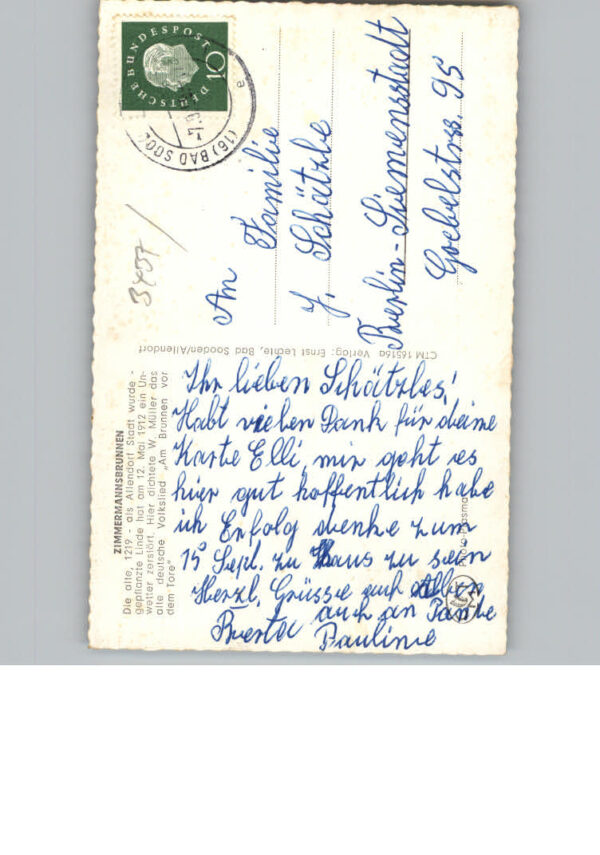 ZIMMERMANNSBRUNNEN
Die alte, 1219 - als Allendorf Stadt wurde -
gepflanzte Linde hat am 12. Mai 1912 ein Un-
wetter zerstört. Hier dichtete W. Müller das
alte deutsche Volkslied „Am Brunnen vor
dem Tore"
Ihr lieben Schätzles!
Habt vielen Dank für deine
Karte Elli, mir geht es
hier gut hoffentlich habe
ich Erfolg denke zum
15 Sept. zu Haus zu sein
Herzl. Grüsse euch Allen
Berta auch an Tante
Pauline
CTM 16516a Verlag: Ernst Lechte, Bad Sooden/Allendorf
DEUTSCHE BUNDESPOST
10
(16) BAD SOO
e
3437/
An Familie
J. Schätzle
Berlin-Siemensstadt
Goebelstrss. 95